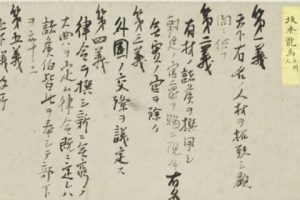 坂本龍馬
第一義
天下有名ノ人材ヲ招致シ顧
問ニ供フ
第二義
有材ノ諸侯ヲ撰用シ
朝廷ノ官爵ヲ賜ヒ現今有名
無実ノ官ヲ除ク
第三義
外国ノ交際ヲ議定ス
第四義
律令ヲ撰シ新ニ無窮ノ
大典ヲ定ム律令既ニ定レハ
諸侯伯皆此ヲ奉シテ部下
ヲ率ス